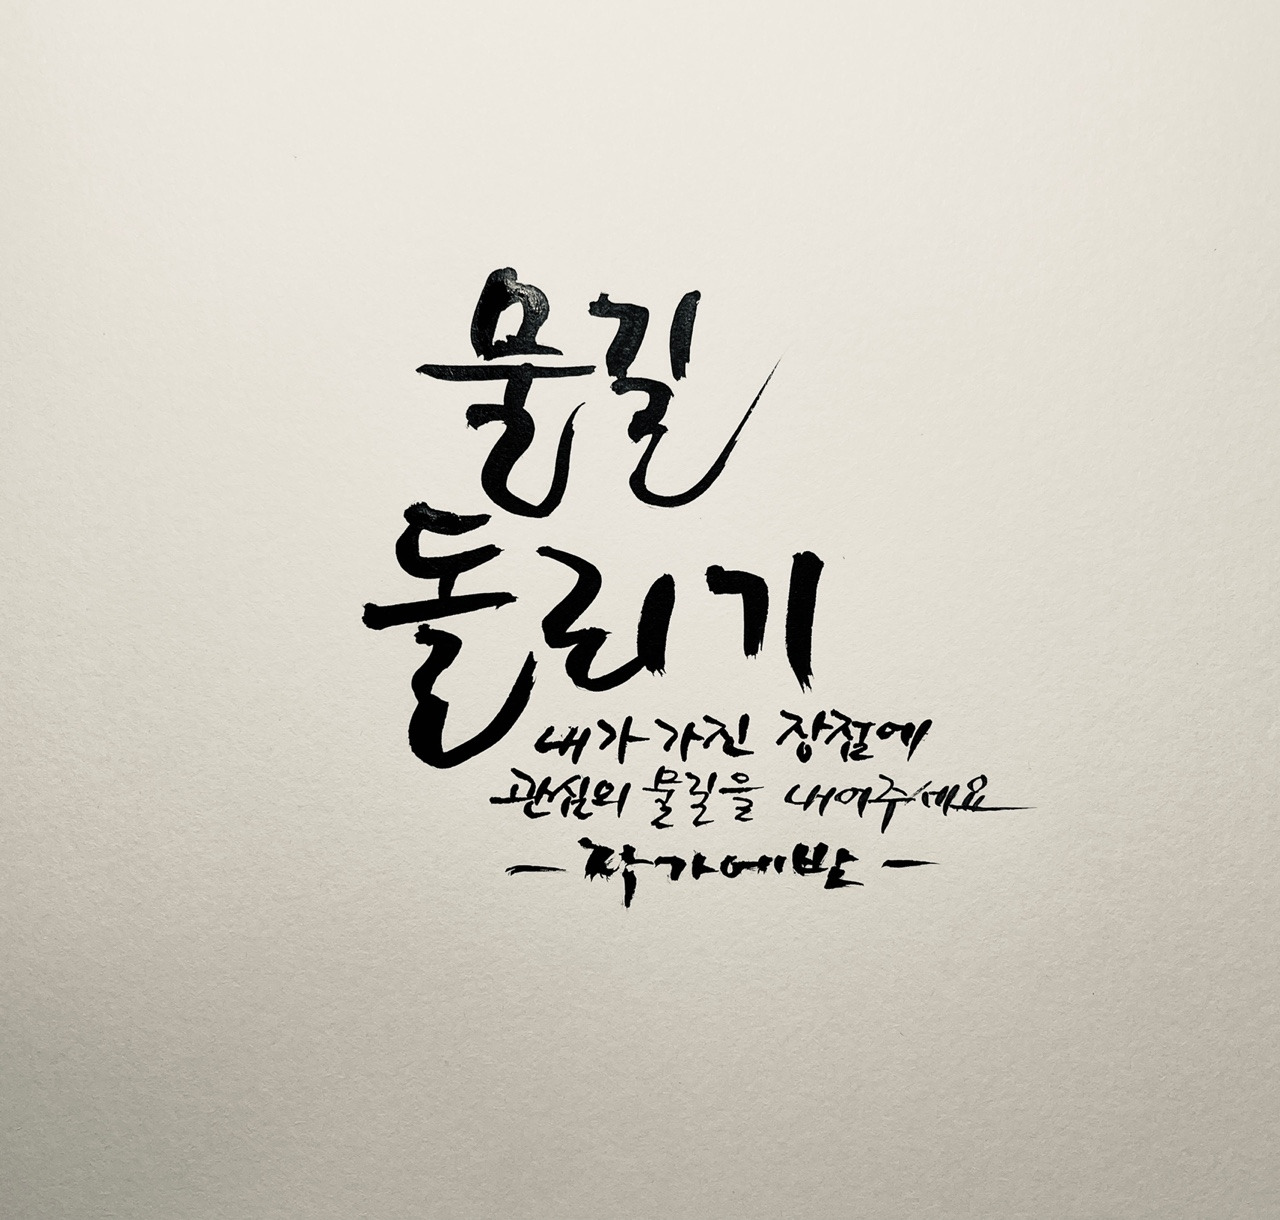 물길
돌리기
내가 가진 장점에
관심의 물길을 내어주세요
- 작가에반 -